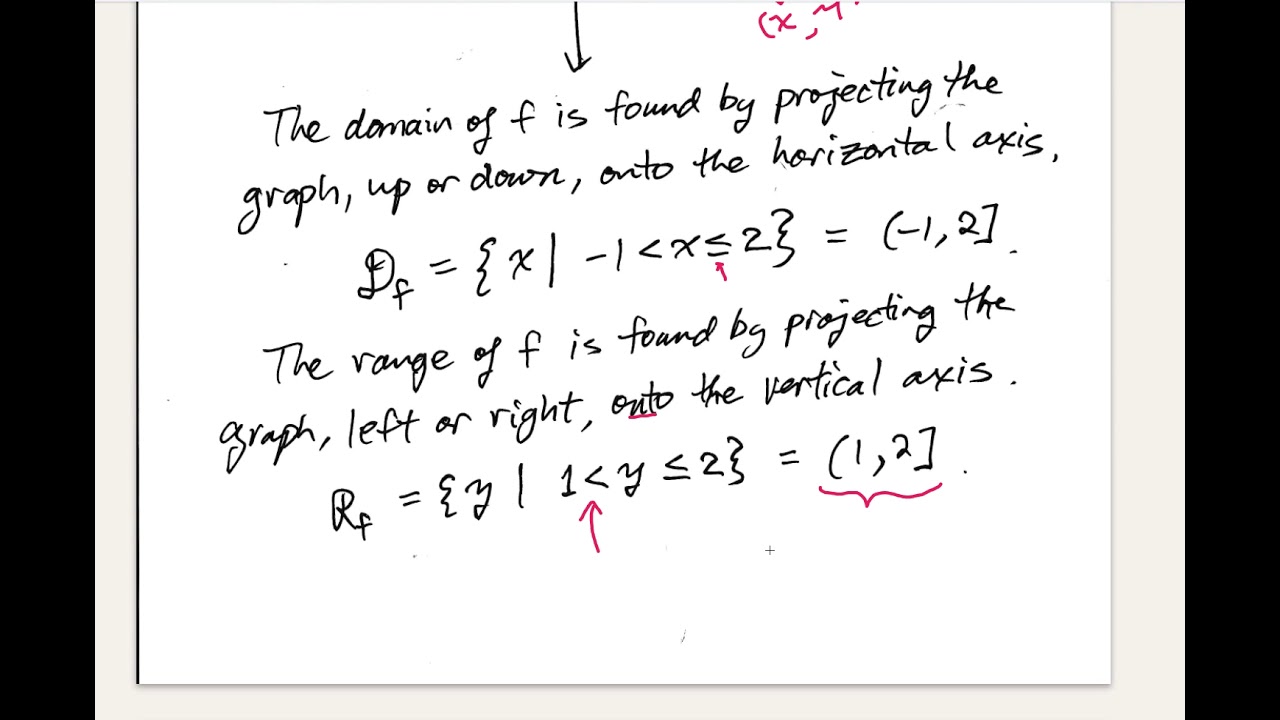 (x, y
The domain of f is found by projecting the
graph, up or down, onto the horizontal axis,
D_f = {x | -1 < x ≤ 2} = (-1, 2].
The range of f is found by projecting the
graph, left or right, onto the vertical axis.
R_f = {y | 1 < y ≤ 2} = (1, 2].